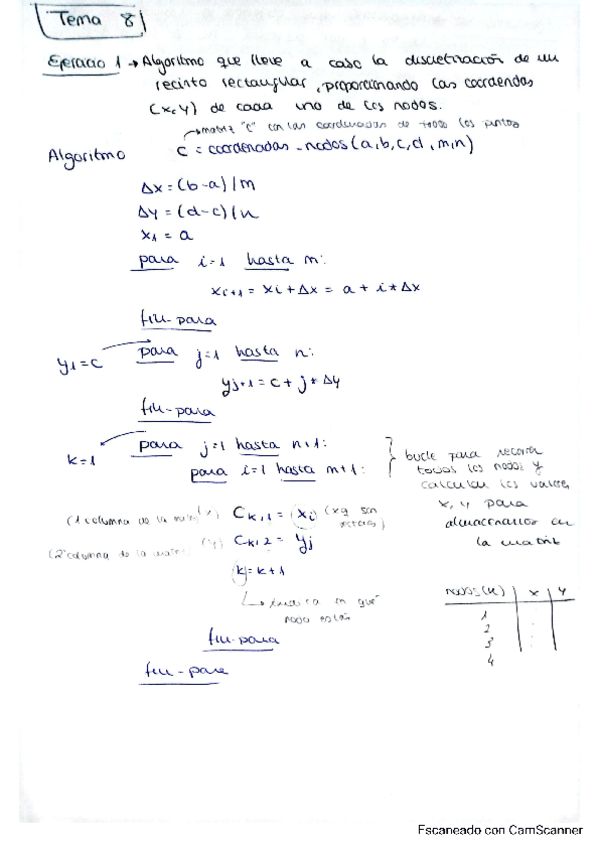 Tema 8
Ejercicio 1 → Algoritmo que lleve a cabo la discretización de un
recinto rectangular, proporcionando las coordendas
(x,y) de cada uno de los nodos.
→ matriz "C" con las coordenadas de todos los puntos
Algoritmo C = coordenadas_nodos (a,b,c,d,m,n)
Δx = (b-a)/m
Δy = (d-c)/n
x1 = a
para i=1 hasta m:
xi+1 = xi + Δx = a + i*Δx
fin-para
y1=c
para j=1 hasta n:
yj+1 = c + j*Δy
fin-para
k=1
para j=1 hasta n+1:
para i=1 hasta m+1:
bucle para recorrer
todos los nodos y
calcular los valores
x, y para
almacenarlos en
la matriz
(1 columna de la matriz) (x) Ck,1 = xi (x y son vectores)
(2ª columna de la matriz) (y) Ck,2 = yj
k=k+1
↳ indica en qué
nodo están
fin-para
fin-para
nodos (k) | x | y
1
2
3
4
Escaneado con CamScanner